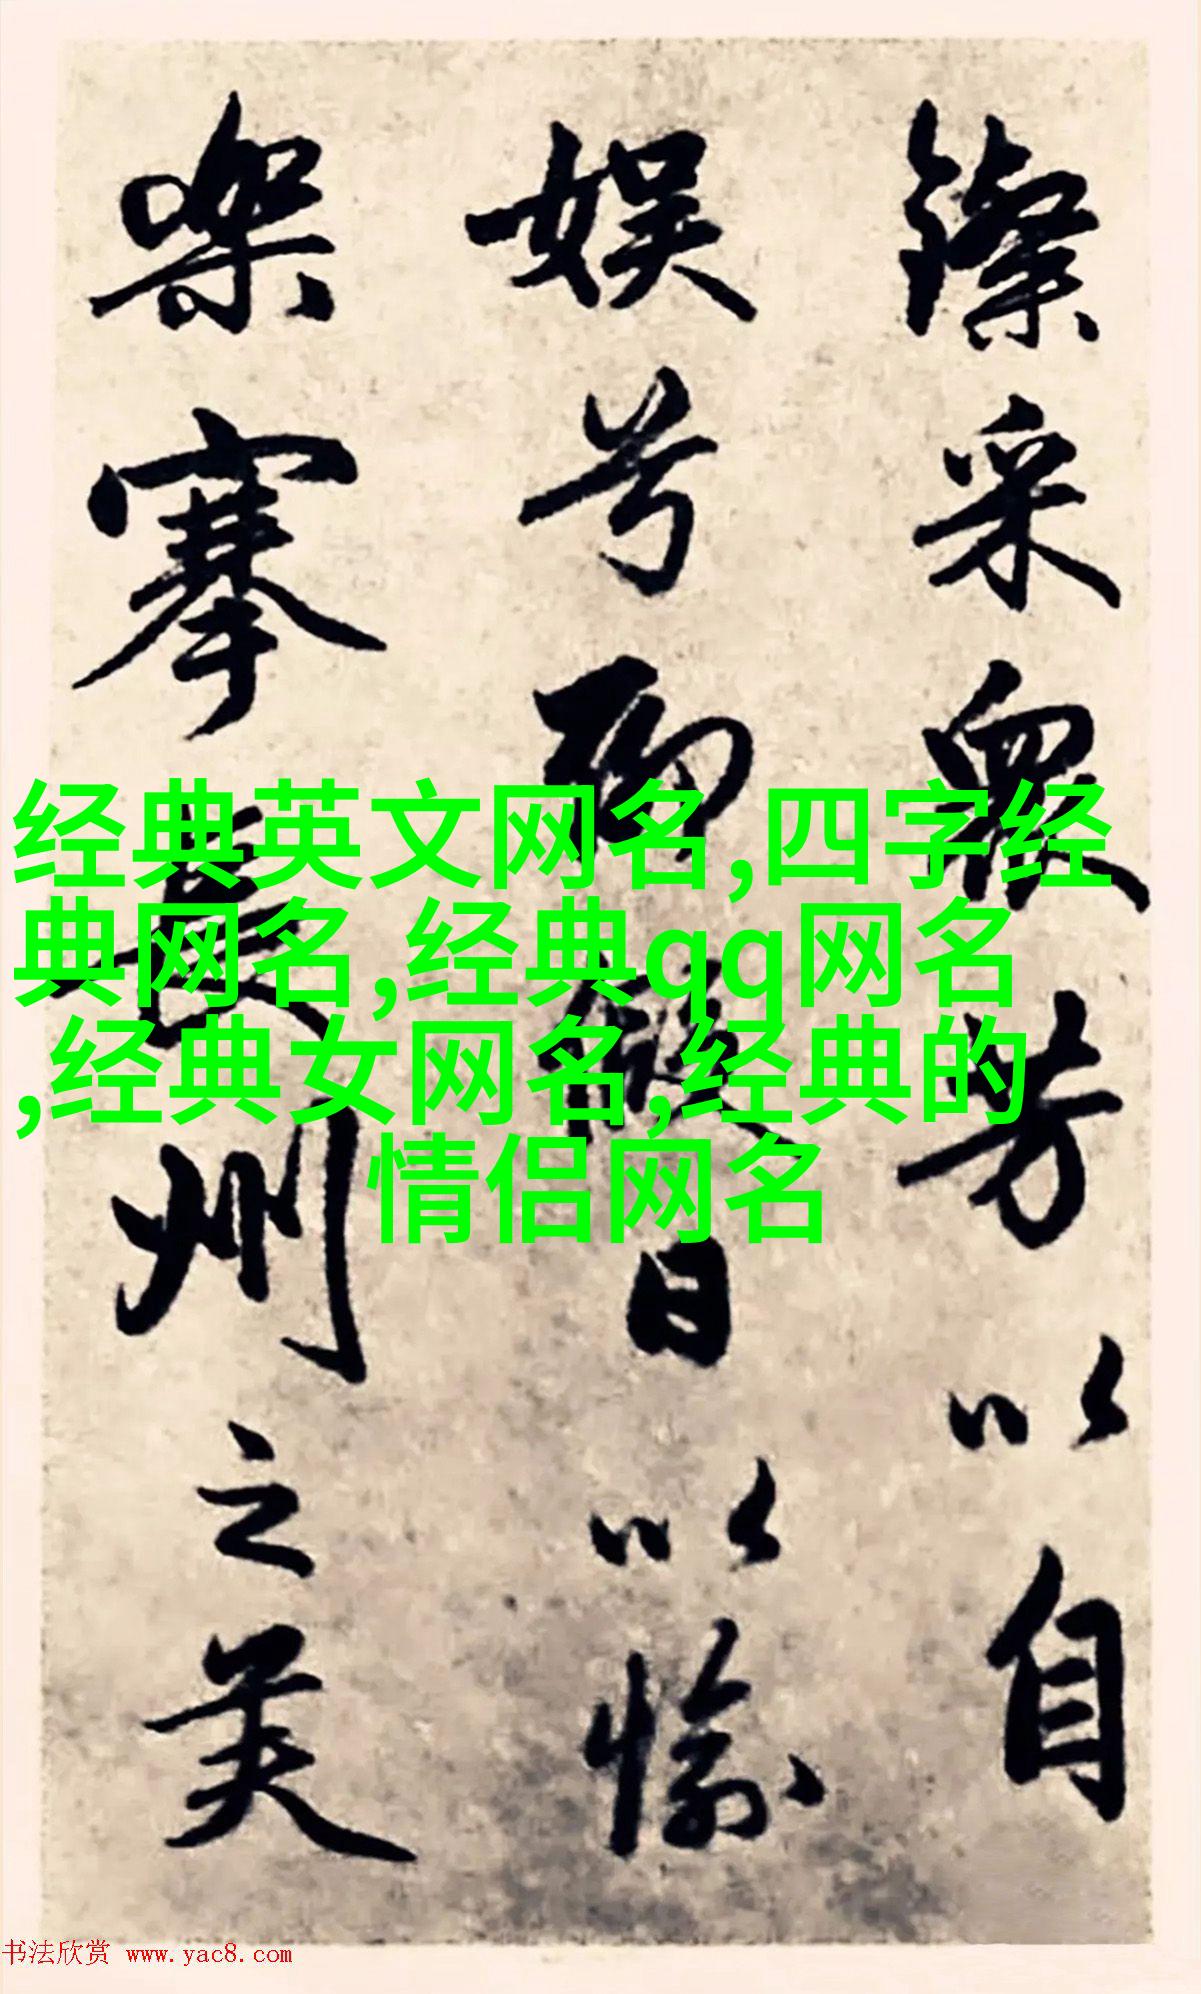 采衆芳以自
娱兮聊日以愉
樂搴長州之芙
经典英文网名,四字经
典网名,经典qq网名
,经典女网名,经典的
情侣网名
书法欣赏 www.yac8.com